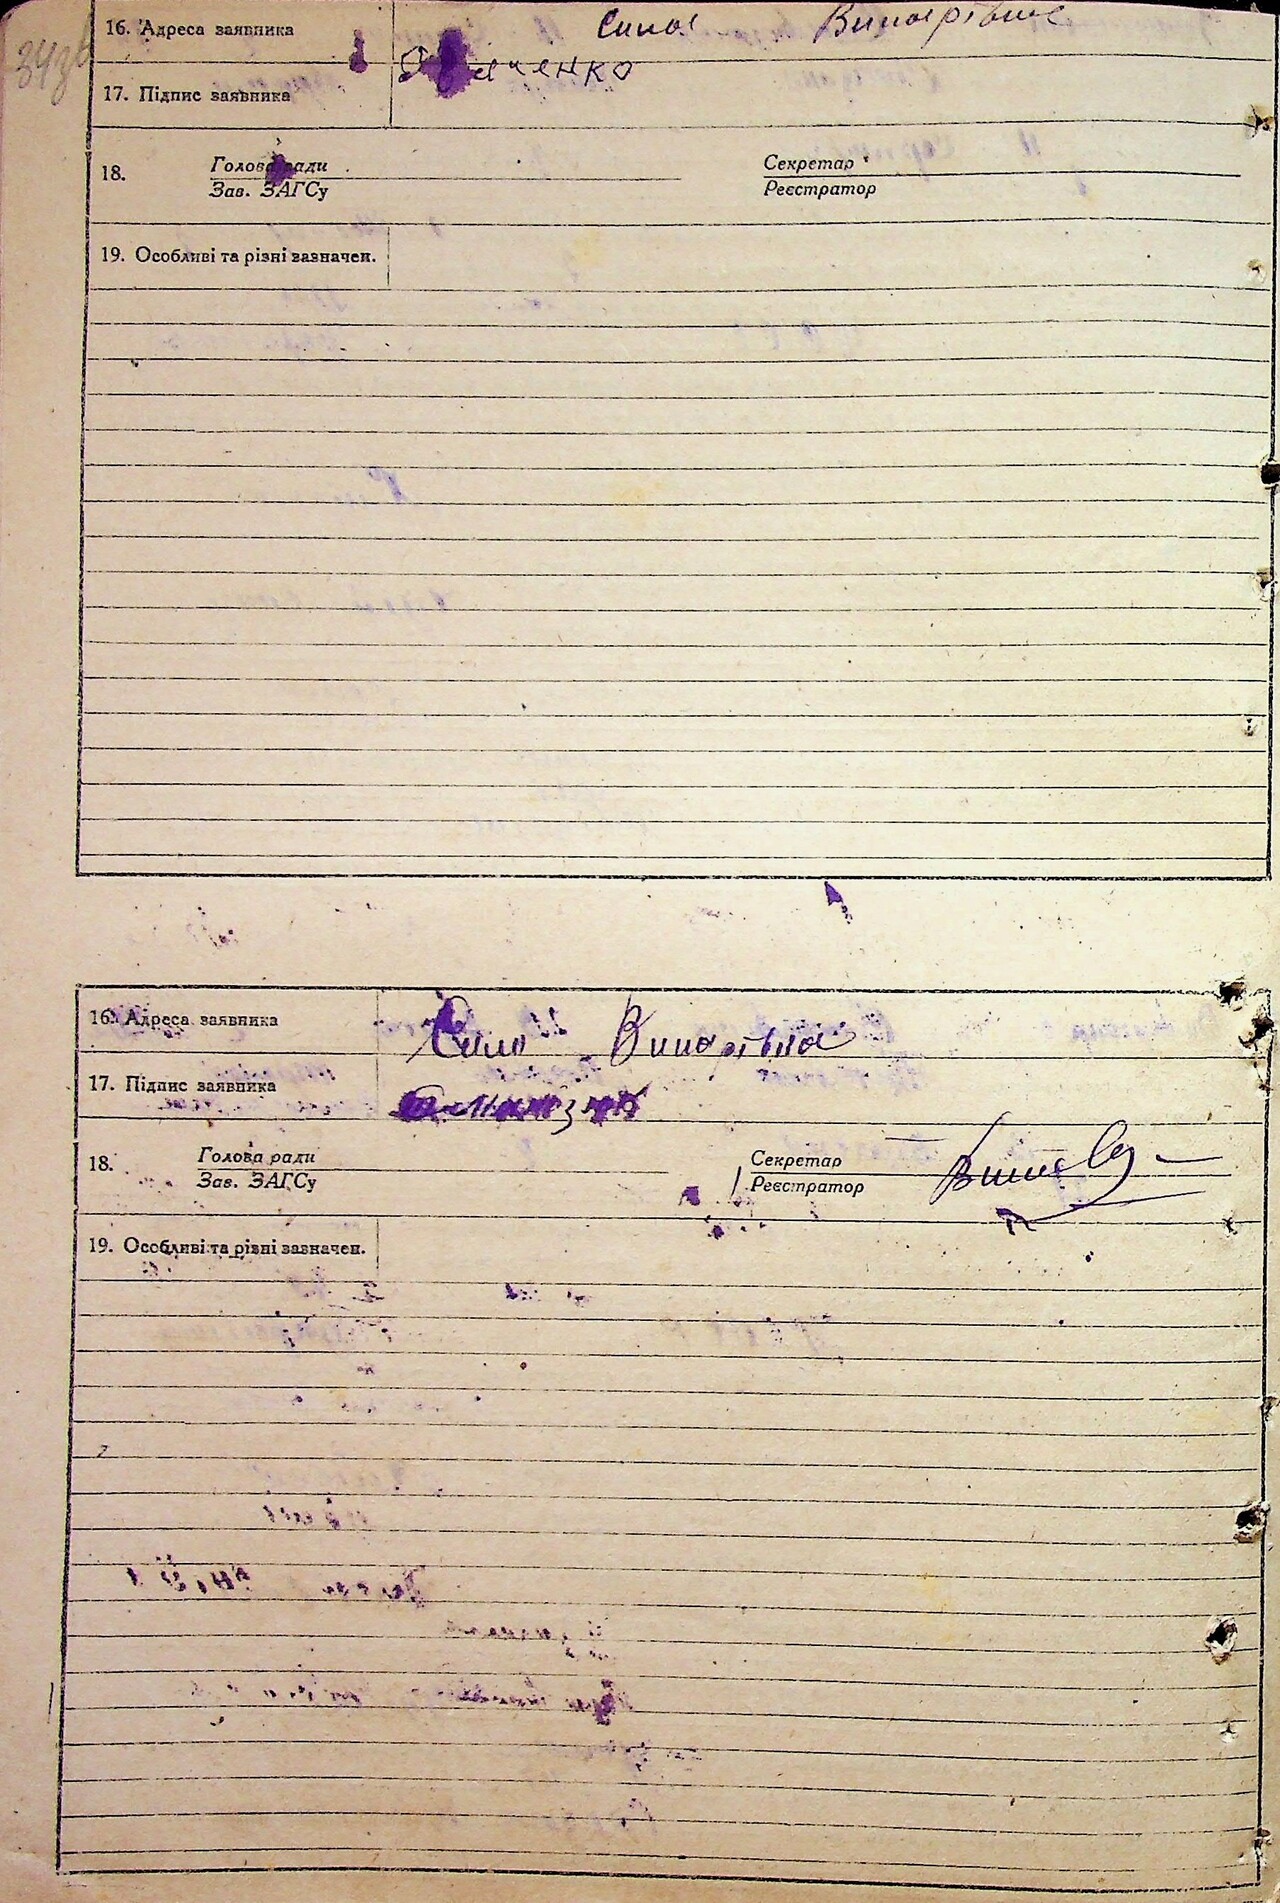 343в
16. Адреса заявника Село Винарівка
17. Підпис заявника
18. Голова ради Секретар
Зав. ЗАГСу Реєстратор
19. Особливі та різні зазначен.
16. Адреса заявника Село Винарівка
17. Підпис заявника
18. Голова ради Секретар
Зав. ЗАГСу Реєстратор
19. Особливі та різні зазначен.